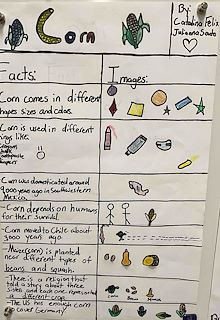 Corn
By:
Catalina Felix
Julianna Souto
Facts:
Images:
Corn comes in different
shapes sizes and colors.
Corn is used in different
things like:
Corn was domesticated around
9000 years ago in Southwestern
Mexico.
-Corn depends on humans
for their survival.
Corn moved to Chile about
3000 years ago.
-Maize(corn) is planted
near different types of
beans and squash.
-There is a religion that
told a story about three
sisters and each one represented
a different crop.
-The US has enough corn
to cover Germany.